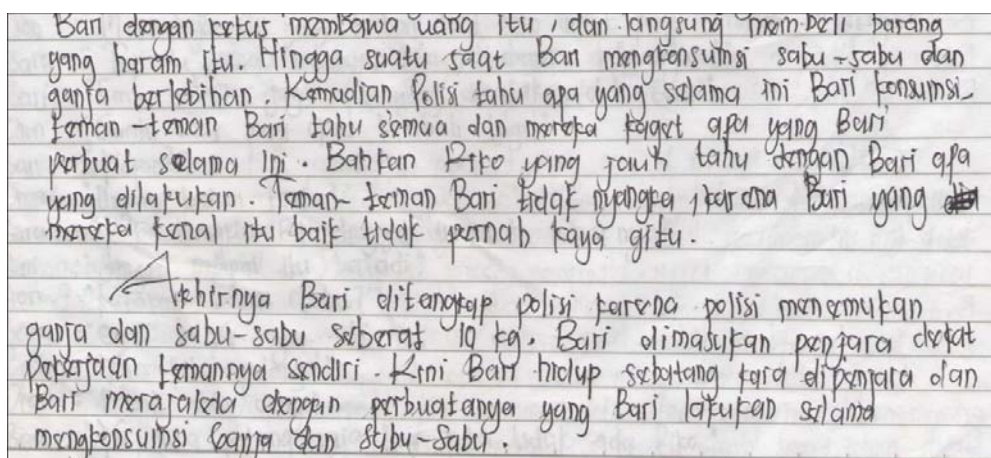 Bari dengan ketus membawa uang itu, dan langsung mem-beli barang
yang haram itu. Hingga suatu saat Bari mengkonsumsi sabu-sabu dan
ganja berlebihan. Kemudian Polisi tahu apa yang selama ini Bari konsumsi.
teman-teman Bari tahu semua dan mereka kaget apa yang Bari
perbuat selama ini. Bahkan Riko yang jauh tahu dengan Bari apa
yang dilakukan. Teman-teman Bari tidak nyangka, karena Bari yang
mereka kenal itu baik tidak pernah kaya gitu.
Akhirnya Bari ditangkap polisi karena polisi menemukan
ganja dan sabu-sabu seberat 10 kg. Bari dimasukan penjara dekat
pekerjaan temannya sendiri. Kini Bari hidup sebatang kara dipenjara dan
Bari merajalela dengan perbuatanya yang Bari lakukan selama
mengkonsumsi Ganja dan Sabu-Sabu.